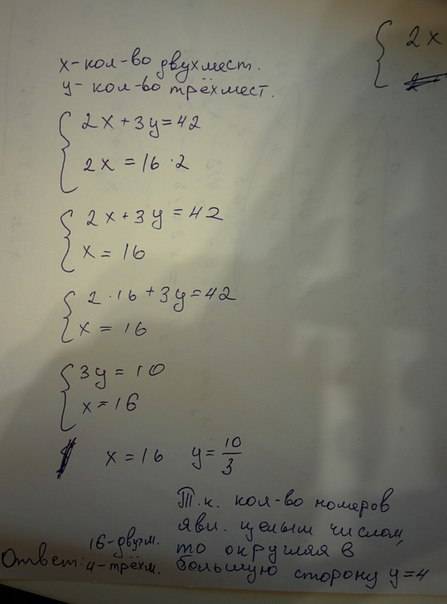 x-кол-во двухмест.
y-кол-во трёхмест.
2x+3y=42
2x=16·2
2x+3y=42
x=16
2·16+3y=42
x=16
3y=10
x=16
x=16 y=10/3
Т.к. кол-во номеров
явл. целым числом,
то округляя в
большую сторону y=4
Ответ: 16-двухм.
4-трёхм.
2x